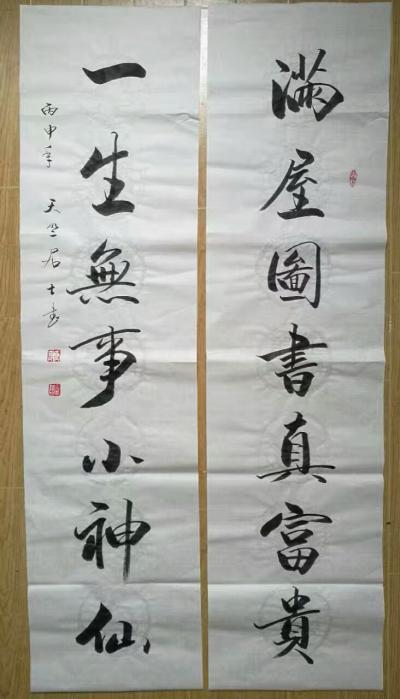 滿屋圖書真富貴
一生無事小神仙
丙申年 天心居士書